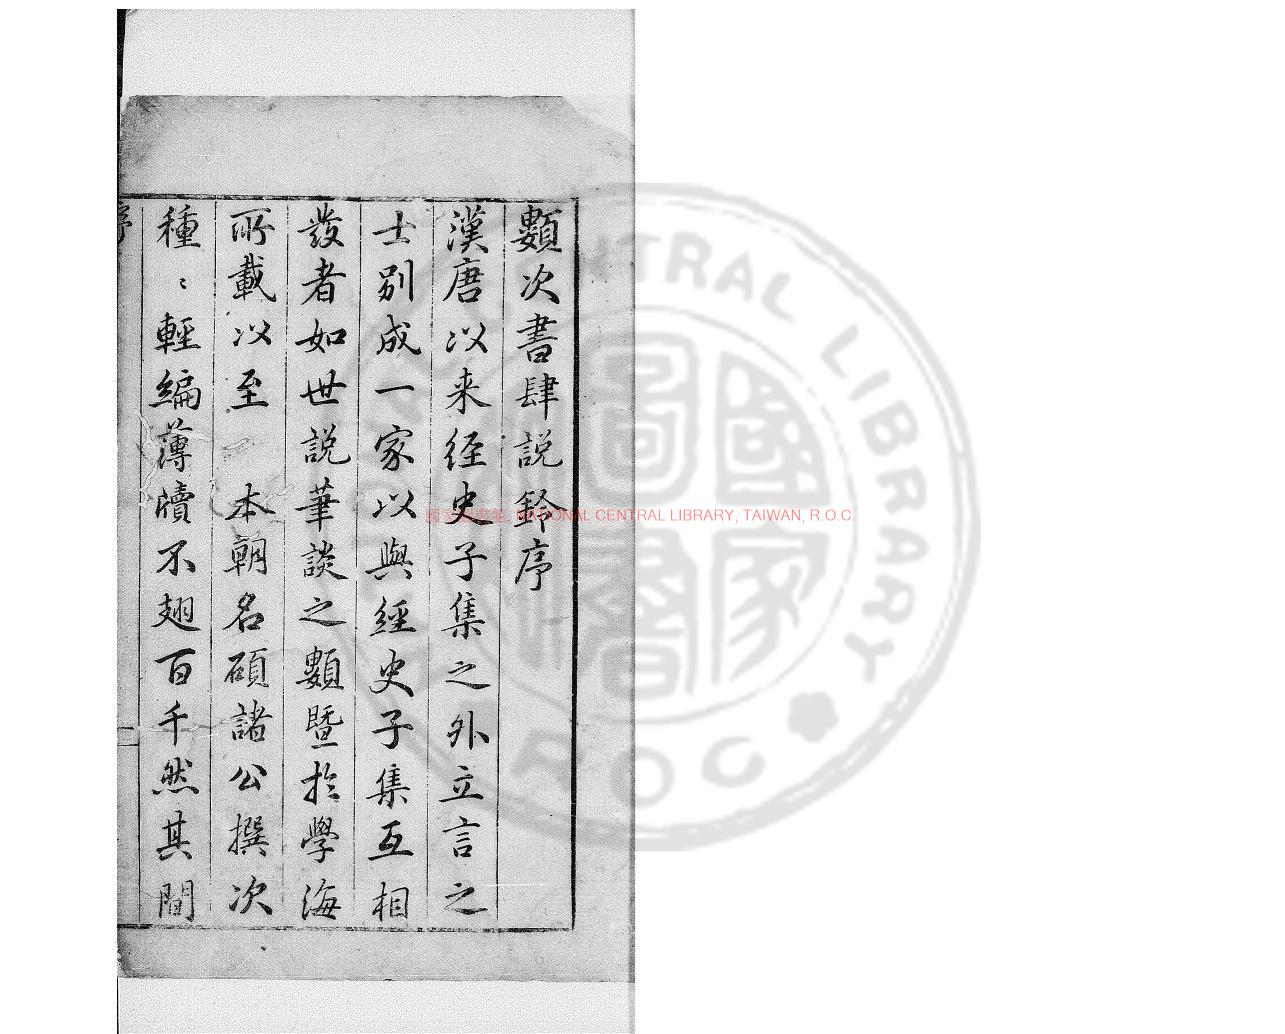 類次書肆說鈴序
漢唐以来経史子集之外立言之
士别成一家以與經史子集互相
發者如世說筆談之類暨於學海
所載以至 本朝名碩諸公撰次
種〻輕編薄牘不翅百千然其間
序
國家圖書館, NATIONAL CENTRAL LIBRARY, TAIWAN, R.O.C.